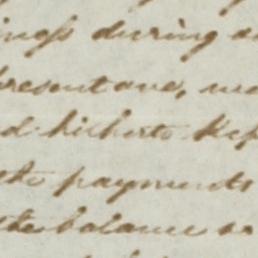 ings during a
present one, we
d hitherto kep
the payments
the balance so